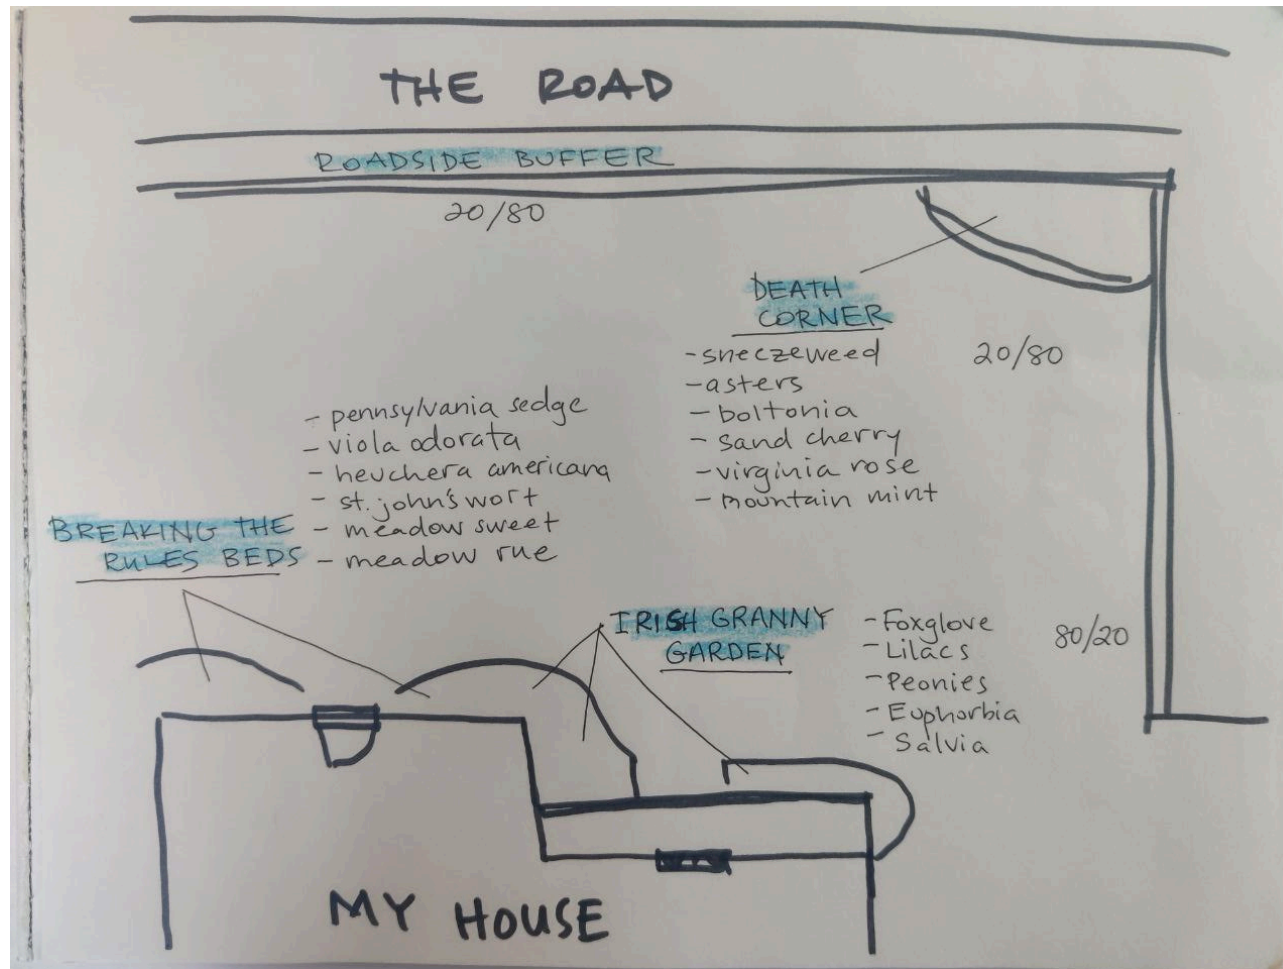 THE ROAD
ROADSIDE BUFFER
20/80
DEATH
CORNER
- sneezeweed
- asters
- boltonia
- sand cherry
- virginia rose
- mountain mint
20/80
- pennsylvania sedge
- viola odorata
- heuchera americana
- st. john's wort
- meadow sweet
- meadow rue
BREAKING THE
RULES BEDS
IRISH GRANNY
GARDEN
- Foxglove
- Lilacs
- Peonies
- Euphorbia
- Salvia
80/20
MY HOUSE